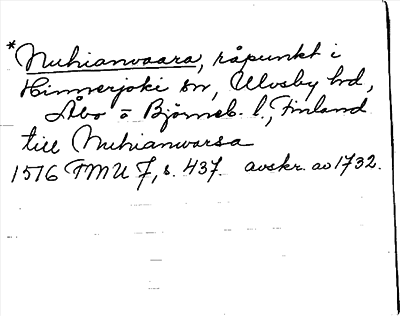 *Nuhianvaara, råpunkt i
Hinnerjoki sn, Ulvsby hd,
Åbo o Björneb. l., Finland
till Nuhianwarsa
1516 FMU 7, s. 437. avskr. av 1732.